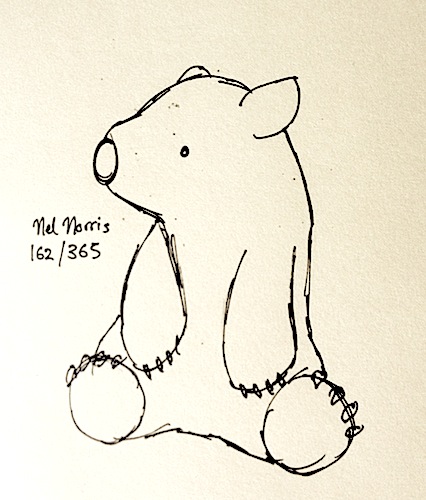 Nel Norris
162/365